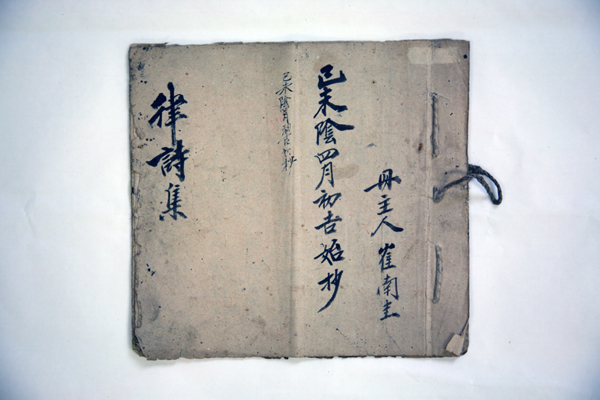 冊主人 崔南圭
己未陰四月初吉始抄
己未陰月初吉始抄
律詩集